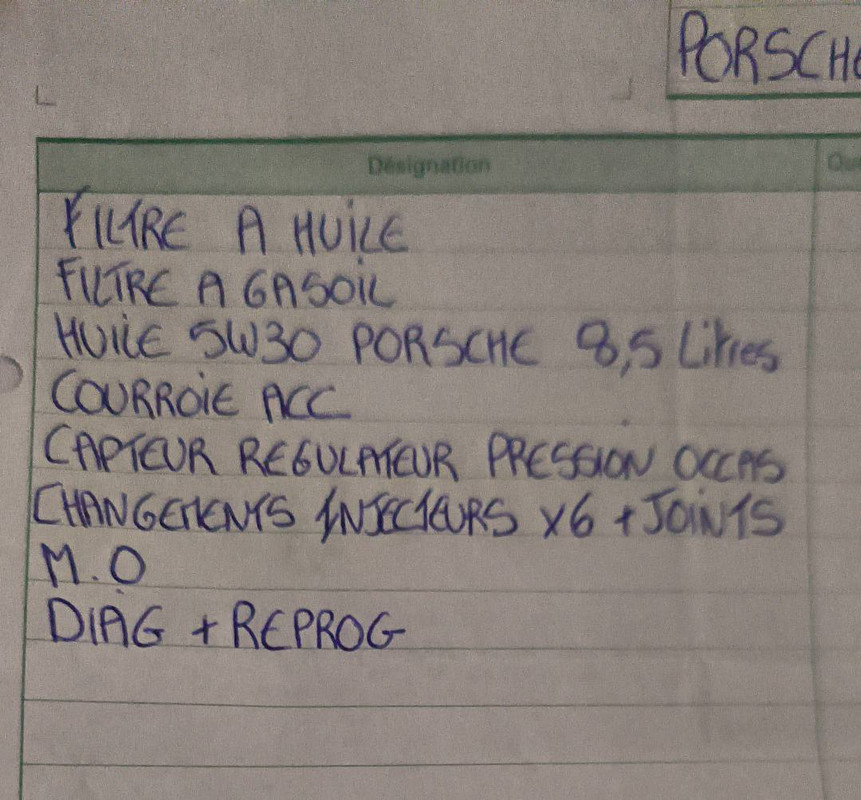 PORSCHE
Désignation
FILTRE A HUILE
FILTRE A GASOIL
HUILE 5W30 PORSCHE 8,5 Litres
COURROIE ACC
CAPTEUR REGULATEUR PRESSION OCCAS
CHANGEMENTS INJECTEURS X6 + JOINTS
M.O
DIAG + REPROG